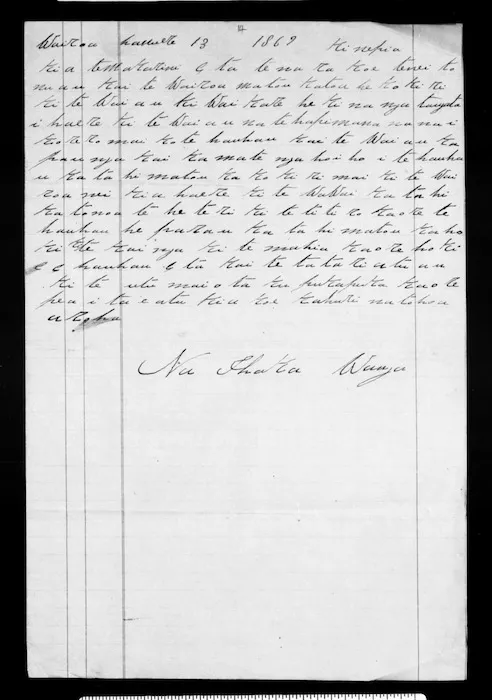 Wairoa hanuere 13 1869 Ki nepia
Kia te Makarini E ta tena ra koe tenei to
mauu kai te Wairoa matou katoa he kokiri
ki te Waiau ki Waikare he kina nga tangata
i haere ki te Waiau na te hapimana nana i
korero mai ko te hauhau kai te Waiau ka
pau nga kai ka mate nga hoiho i te hauha
u ka tahi matou ka kokiri mai ki te Wai
roa nei kia haere ki te Wawai ka tahi
ka tonoa te he te ri ki te titiro kaore te
hauhau he parau ka tahi matou ka ho
ki ki te kai nga ki te mahia kaore hoki
E hauhau E ta kai te tatari atu au
ki te utu mai o taku pukapuka kaore
pea i tae atu kia koe kahuri na tohoa
aroha
Na Ihaka Waaga